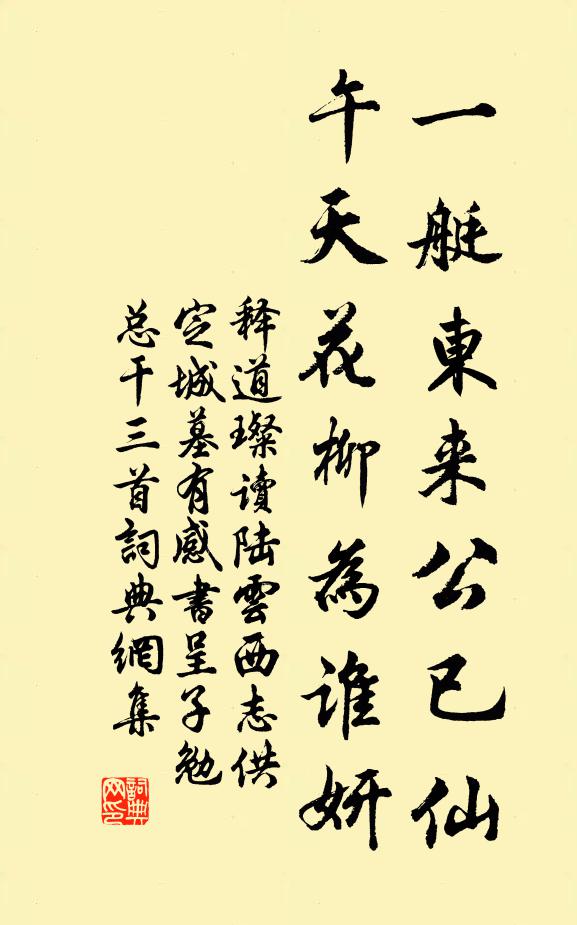 一艇東来公已仙
午天花柳為誰妍
释道璨讀陆雲西志供
定城墓有感書呈子勉
总干三首詞典網集
詞典
网印